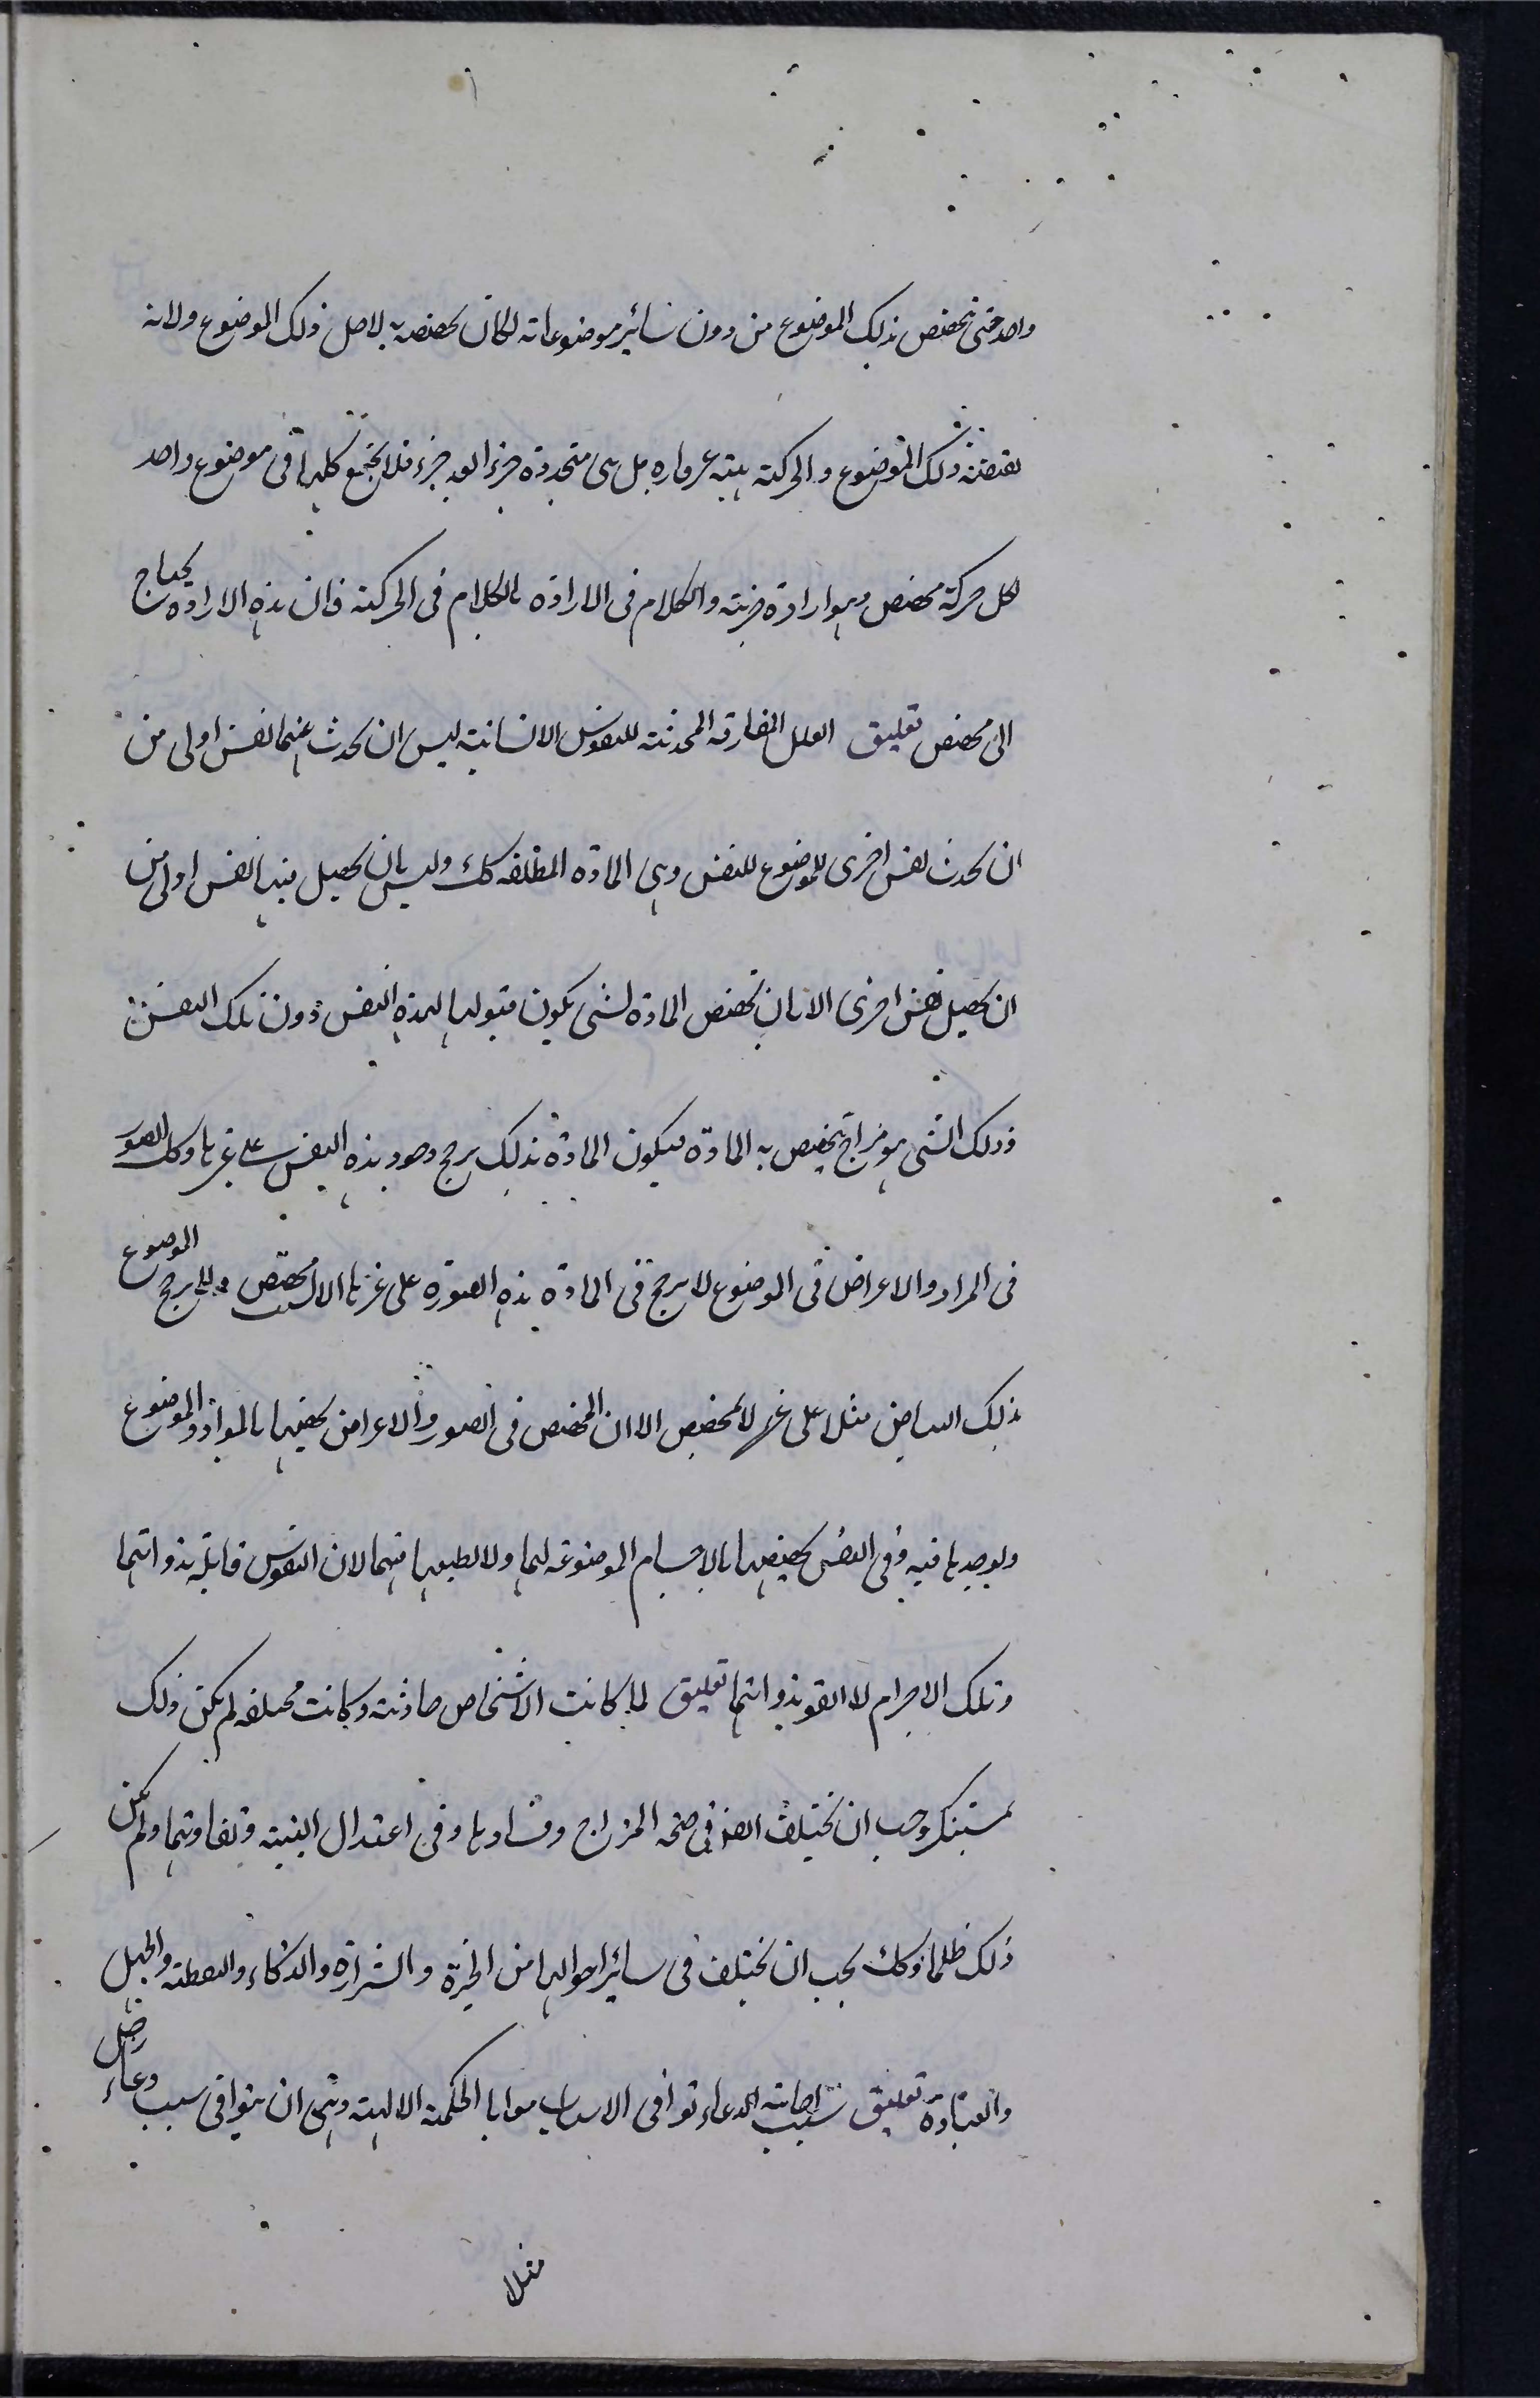 واحد حتى يخصص بذلك الموضوع من دون سائر موضوعاته لكان تخصصه به لاجل ذلك الموضوع ولانه
لذلك الموضوع والحركة هيئة غير قاره بل هى متجددة جزءا بعد جزء فلا يجتمع كلها فى موضوع واحد
لكل حركة مخصص وهو ارادة جزئية والكلام فى الارادة كالكلام فى الحركة فان هذه الارادة يحتاج
الى مخصص تعليق العلل المفارقة المحدثة للنفوس الانسانية ليس ان يحدث عنها نفس اولى من
ان يحدث نفس اخرى للموضوع للنفس وهى المادة المطلقه كك وليس بان يحصل فيها نفس اولى من
ان يحصل نفس اخرى الا بان تخصص المادة لشى يكون قبولها لهذه النفس دون تلك النفس
وذلك الشى هو مزاج يخصص به المادة فيكون المادة بذلك يرجح وجود هذه النفس على غيرها وكك الصور
فى المواد والاعراض فى الموضوع لا يرجح فى المادة هذه الصورة على غيرها الا لمخصص ولا يرجح الموضوع
بذلك البياض مثلا على غيره لا لمخصص الا ان المخصص فى الصور والاعراض يخصصها بالمواد والموضوع
ويوجدها فيه وفى النفس يخصصها بالاجسام الموضوعه لها ولا يطبعها فيها لان النفوس قائمة بذواتها
وتلك الاجرام لا القوة بذواتها تعليق لما كانت الاشخاص حادثة وكانت مختلفه لم يكن ذلك
بمستنكر وجب ان يختلف ايضا فى صحة المزاج وفسادها وفى اعتدال البنية وتفاوتها ولم يكن
ذلك ظلما وكك يجب ان يختلف فى سائر احوالها من الخيرة والشرارة والذكاء والفطنة والجهل
والغباوة تعليق سبب اجابة الدعاء توافى الاسباب معا بالحكمة الالهية وهى ان يتوافى سبب دعاء رجل
مثلا